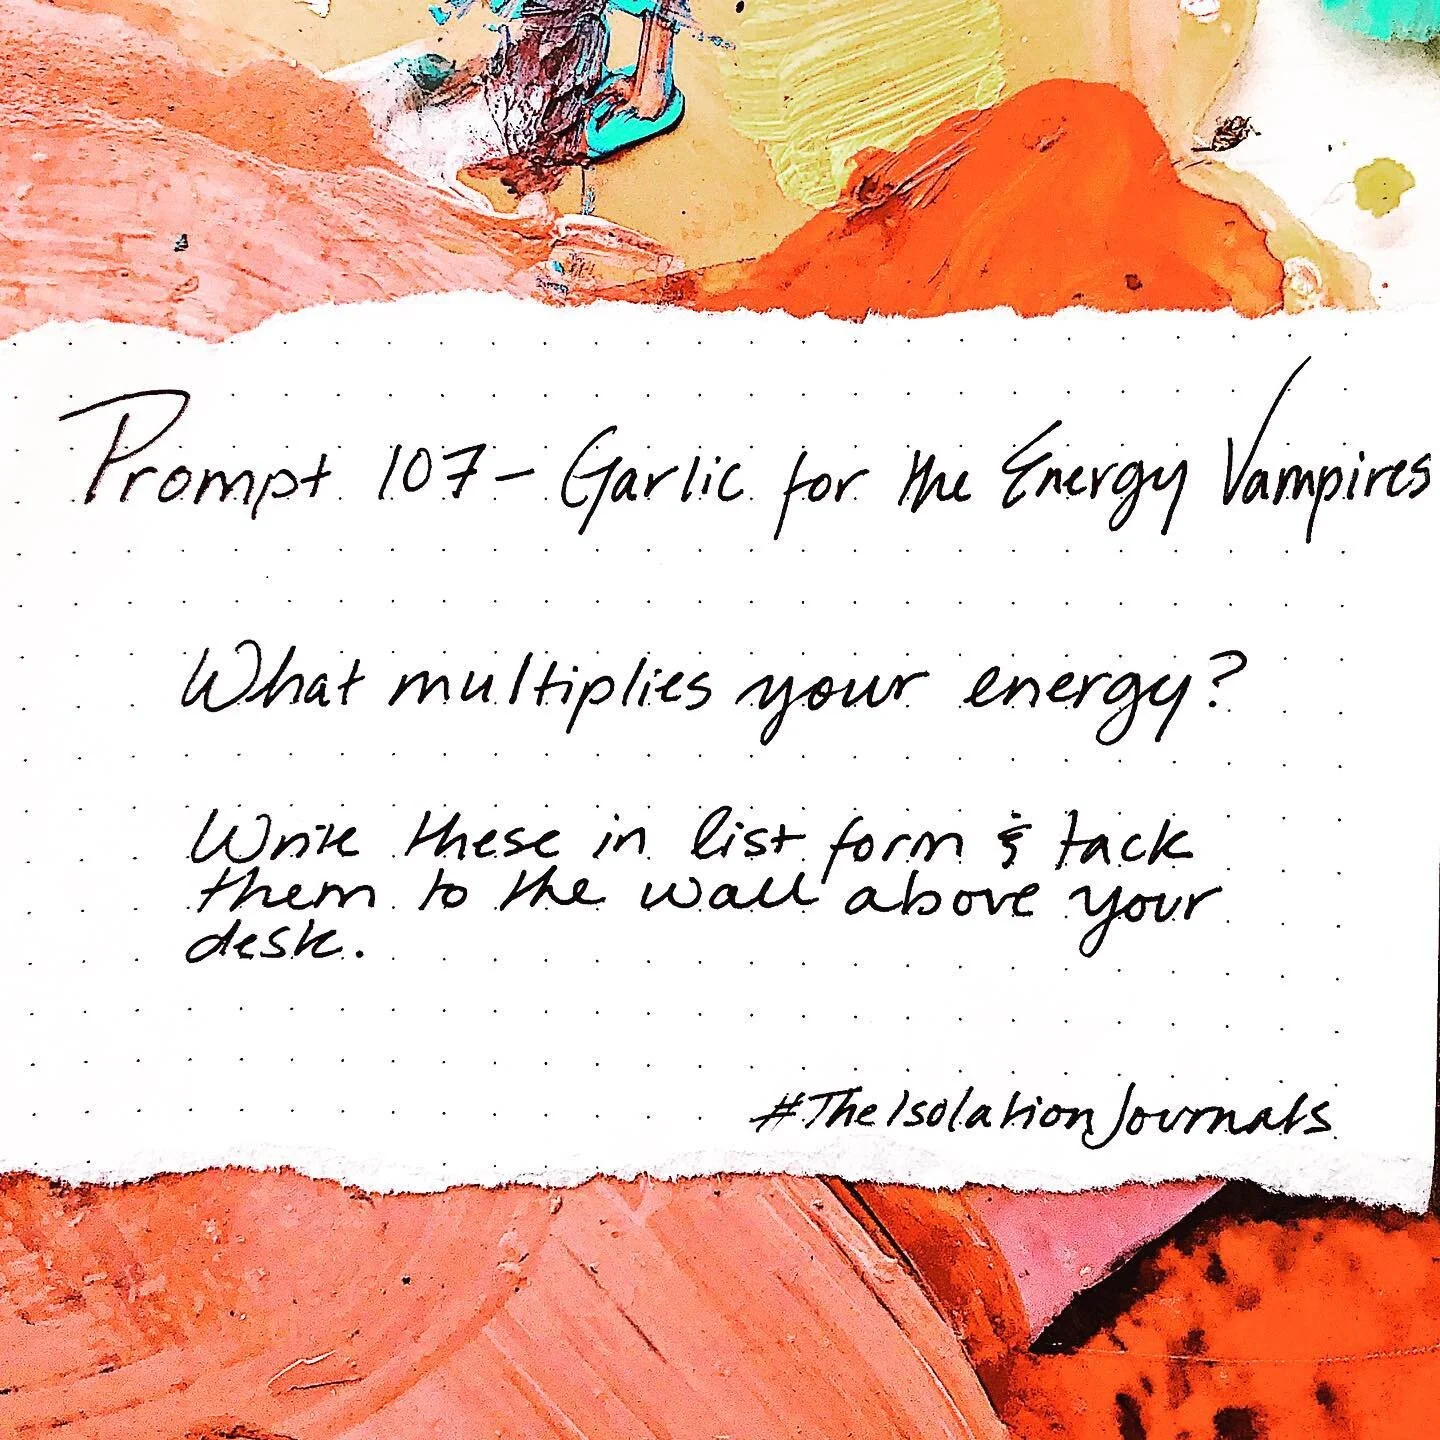 Prompt 107 - Garlic for the Energy Vampires
What multiplies your energy?
Write these in list form & tack
them to the wall above your
desk.
#TheIsolationJournals